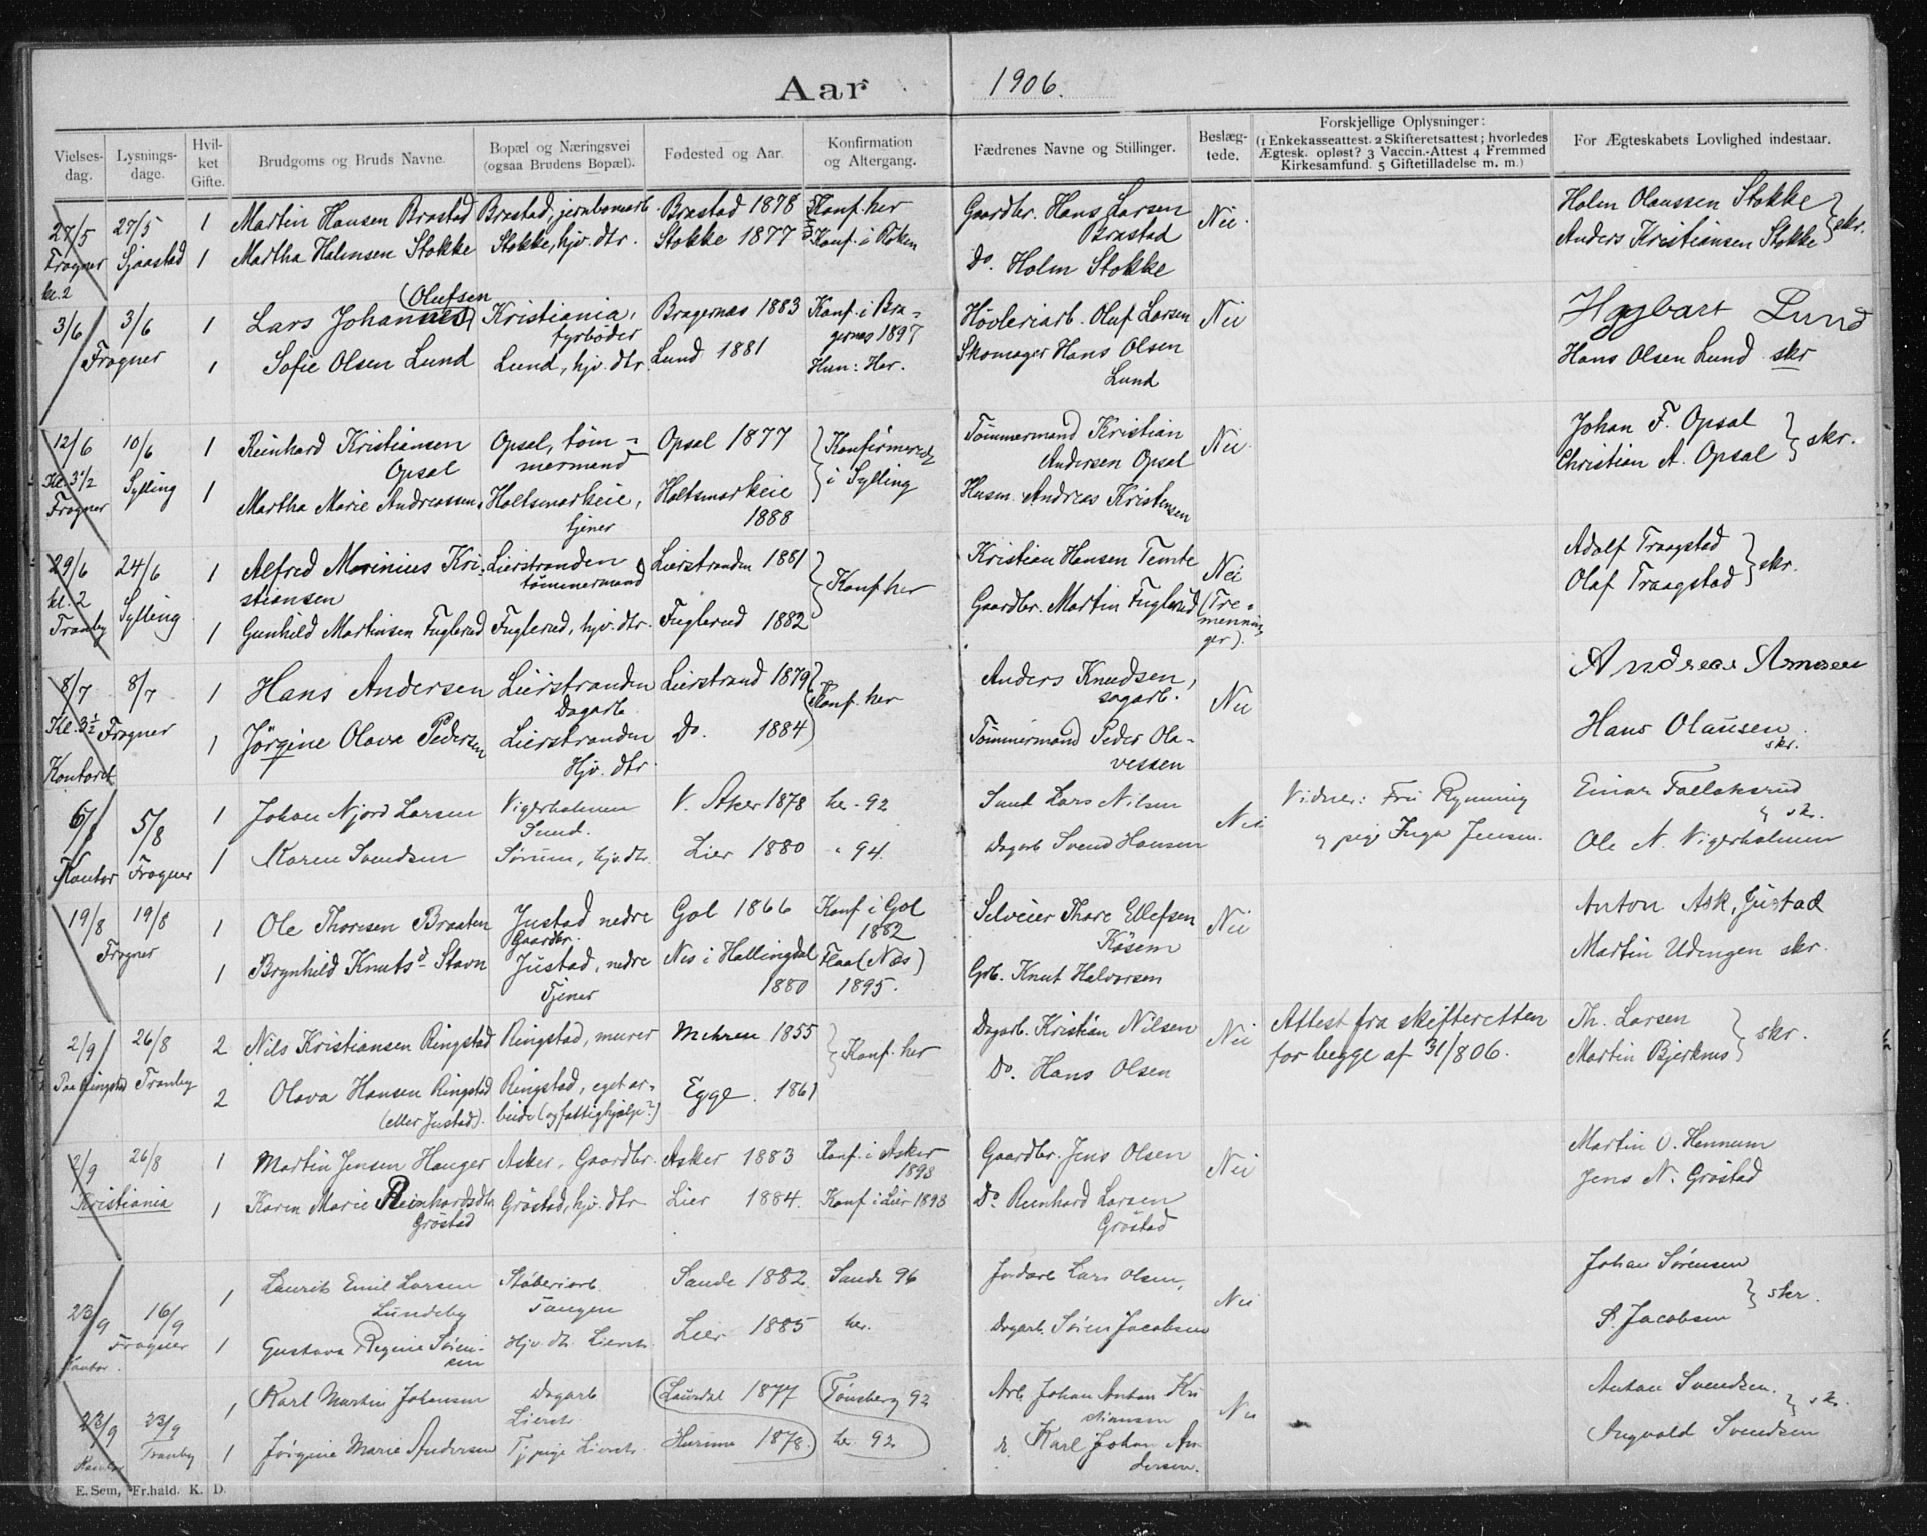 Aar 1906.
Vielses-dag. Lysnings-dage. Hvil-ket Gifte. Brudgoms og Bruds Navne. Bopæl og Næringsvei (ogsaa Brudens Bopæl). Fødested og Aar. Konfirmation og Altergang. Fædrenes Navne og Stillinger. Beslæg-tede. Forskjellige Oplysninger: (1 Enkekasseattest. 2 Skifteretsattest; hvorledes Ægtesk. opløst? 3 Vaccin.-Attest 4 Fremmed Kirkesamfund. 5 Giftetilladelse m. m.) For Ægteskabets Lovlighed indestaar.
27/5 27/5 1 Martin Hansen Brastad Brastad, jernbanearb. Brastad 1878 Konf. her Gaardbr. Hans Larsen Brastad Nei. Holm Olaussen Stokke
Frogner kl. 2 Sjaastad 1 Martha Holmsen Stokke Stokke, hjv. dtr. Stokke 1877 Konf. i Røken Do. Holm Stokke Anders Kristiansen Stokke } skr.
3/6 3/6 1 Lars Johansen (Olufsen) Kristiania, fyrbøder Bragernæs 1883 Konf. i Bra-gernæs 1897 Høvleriarb. Oluf Larsen Nei Hagbart Lund
Frogner 1 Sofie Olsen Lund Lund, hjv. dtr. Lund 1881 Hun: Her. Skomager Hans Olsen Lund Hans Olsen Lund skr
12/6 10/6 1 Reinhard Kristiansen Opsal Opsal, tøm-mermand Opsal 1877 } Konfirmerede i Sylling Tømmermand Kristian Andersen Opsal Nei. Johan F. Opsal
Kl. 3 1/2 Frogner Sylling 1 Martha Marie Andreassen, Holtsmarkeie, tjener Holtsmarkeie 1888 Husm. Andreas Kristensen Christian A. Opsal } skr.
29/6 24/6 1 Alfred Marinius Kri-stiansen Lierstranden tømmermand Lierstranden 1881 } Konf. her Kristian Hansen Temte Nei (Tre-mennin-ger). Adolf Traagstad
kl. 2 Tranby Sylling 1 Gunhild Martinsen Fuglerud Fuglerud, hjv. dtr. Fuglerud 1882 Gaardbr. Martin Fuglerud Olaf Traagstad } skr.
8/7 8/7 1 Hans Andersen Lierstranden Dagarb. Lierstrand 1879 } Konf. her Anders Knudsen, sagarb. Nei Andreas Amosen
Kl. 3 1/2 Kontoret Frogner 1 Jörgine Olava Pedersen Lierstranden Hjv. dtr. Do. 1884 Tømmermand Peder Ola-vessen Hans Olausen skr.
6/8 5/8 1 Johan Njord Larsen Vigerholmen Smed. V. Aker 1878 her - 92 Smed Lars Nilsen Nei Vidner: Fru Rynning Einar Fallaksrud
Kontor Frogner 1 Karen Svendsen Sørum, hjv. dtr. Lier 1880 " 94. Dagarb Svend Hansen og pige Inga Jensen. Ole N. Vigerholmen } sk.
19/8 19/8 1 Ole Thoresen Braaten Justad nedre Gaardbr. Gol 1866 Konf i Gol 1882 Selveier Thore Ellefsen Nei Anton Ask, Justad
Frogner 1 Brynhild Knutsd- Stavn Justad, nedre Tjener Nes i Hallingdal 1880 Flaa (Næs) 1895. Grb. Knut Halvorsen Martin Udengen skr.
2/9 26/8 2 Nils Kristiansen Ringstad Ringstad, murer Mehren 1855 } Konf. her Dagarb. Kristian Nilsen Nei Attest fra skifteretten Th. Larsen
Paa Ringstad Tranby 2 Olava Hansen Ringstad (eller Justad). Ringstad, eget ar-beide (og fattighjælp?) Egge. 1861 Do. Hans Olsen for begge af 31/8 06. Martin Bjerknes } skr.
2/9 26/8 1 Martin Jensen Hauger Asker, Gaardbr. Asker 1883 Konf. i Asker 1898 Gaardbr. Jens Olsen Nei Martin O. Hennum
Kristiania 1 Karen Marie Reinhardsdtr. Gröstad Gröstad, hjv. dtr Lier 1884. Konf i Lier 1898 Do. Reinhard Larsen Gröstad Jens N. Gröstad
23/9 16/9 1 Laurits Emil Larsen Lundeby Støberiarb. Tangen Sande 1882 Sande 96 Jordarb Lars Olsen, Nei Johan Sørensen
Kontor. Frogner 1 Gustava Regine Søren-sen Hjv. dtr. Lierstr. Lier 1885 her. Dagarb. Søren Jacobsen S. Jacobsen } skr.
23/9 23/9 1 Karl Martin Johansen Dagarb Lierstr. Laurdal 1877 Tønsberg 92 Arb. Johan Anton Kri-stiansen Nei Anton Svendsen.
Kontor Tranby 1 Jørgine Marie Andersen Tj. pige Lierstr. Hurum 1878. her 92 Karl Johan An-dersen. Ingvald Svendsen } sk.
E. Sem, Fr.hald. K. D.